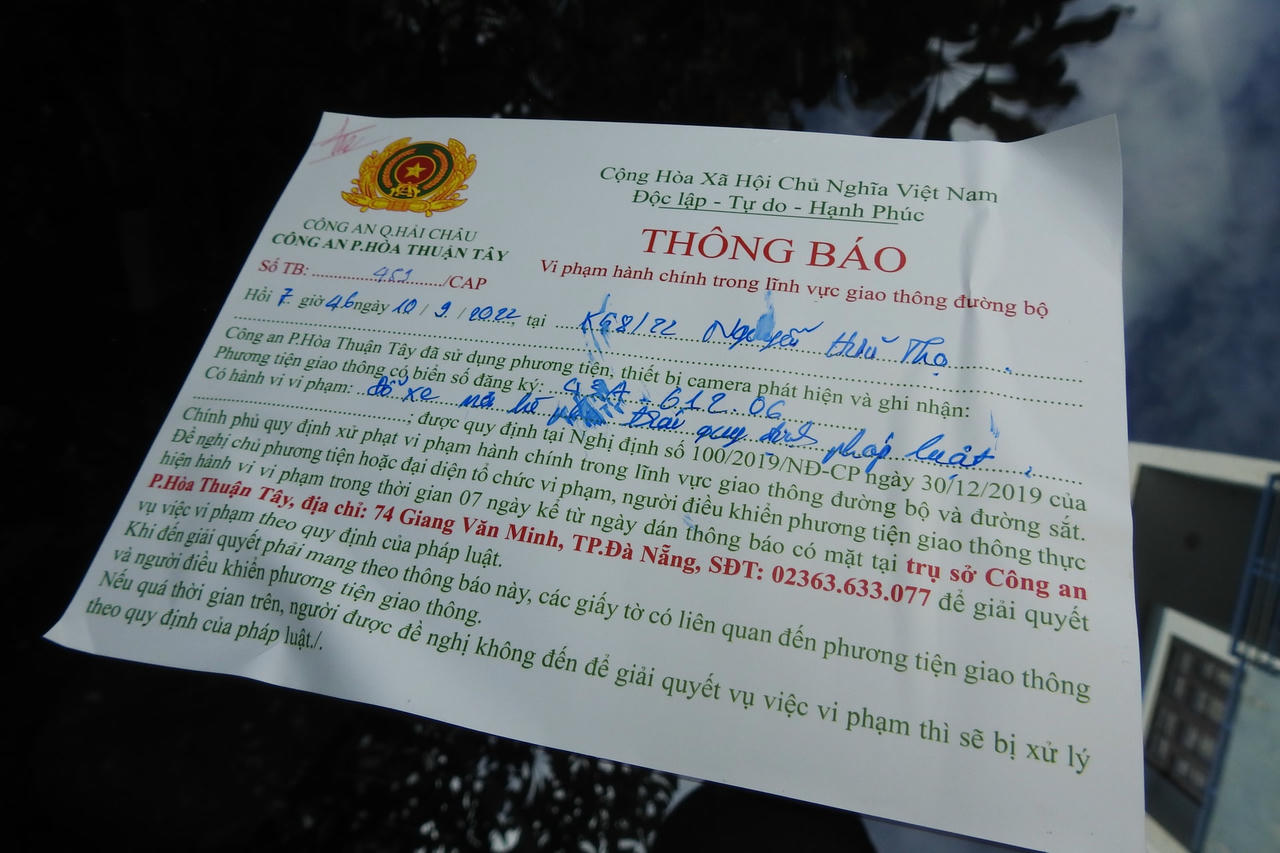 CÔNG AN Q.HẢI CHÂU
CÔNG AN P.HÒA THUẬN TÂY
Số TB: 451 /CAP
Cộng Hòa Xã Hội Chủ Nghĩa Việt Nam
Độc lập - Tự do - Hạnh Phúc
THÔNG BÁO
Vi phạm hành chính trong lĩnh vực giao thông đường bộ
Hồi 7 giờ 46 ngày 10 / 9 / 2022, tại K98/22 Nguyễn Hữu Thọ
Công an P.Hòa Thuận Tây đã sử dụng phương tiện, thiết bị camera phát hiện và ghi nhận:
Phương tiện giao thông có biển số đăng ký: 612.06
Có hành vi vi phạm: Đỗ xe hè trái quy định pháp luật
; được quy định tại Nghị định số 100/2019/NĐ-CP ngày 30/12/2019 của
Chính phủ quy định xử phạt vi phạm hành chính trong lĩnh vực giao thông đường bộ và đường sắt.
Đề nghị chủ phương tiện hoặc đại diện tổ chức vi phạm, người điều khiển phương tiện giao thông thực
hiện hành vi vi phạm trong thời gian 07 ngày kể từ ngày dán thông báo có mặt tại trụ sở Công an
P.Hòa Thuận Tây, địa chỉ: 74 Giang Văn Minh, TP.Đà Nẵng, SĐT: 02363.633.077 để giải quyết
vụ việc vi phạm theo quy định của pháp luật.
Khi đến giải quyết phải mang theo thông báo này, các giấy tờ có liên quan đến phương tiện giao thông
và người điều khiển phương tiện giao thông.
Nếu quá thời gian trên, người được đề nghị không đến để giải quyết vụ việc vi phạm thì sẽ bị xử lý
theo quy định của pháp luật./.